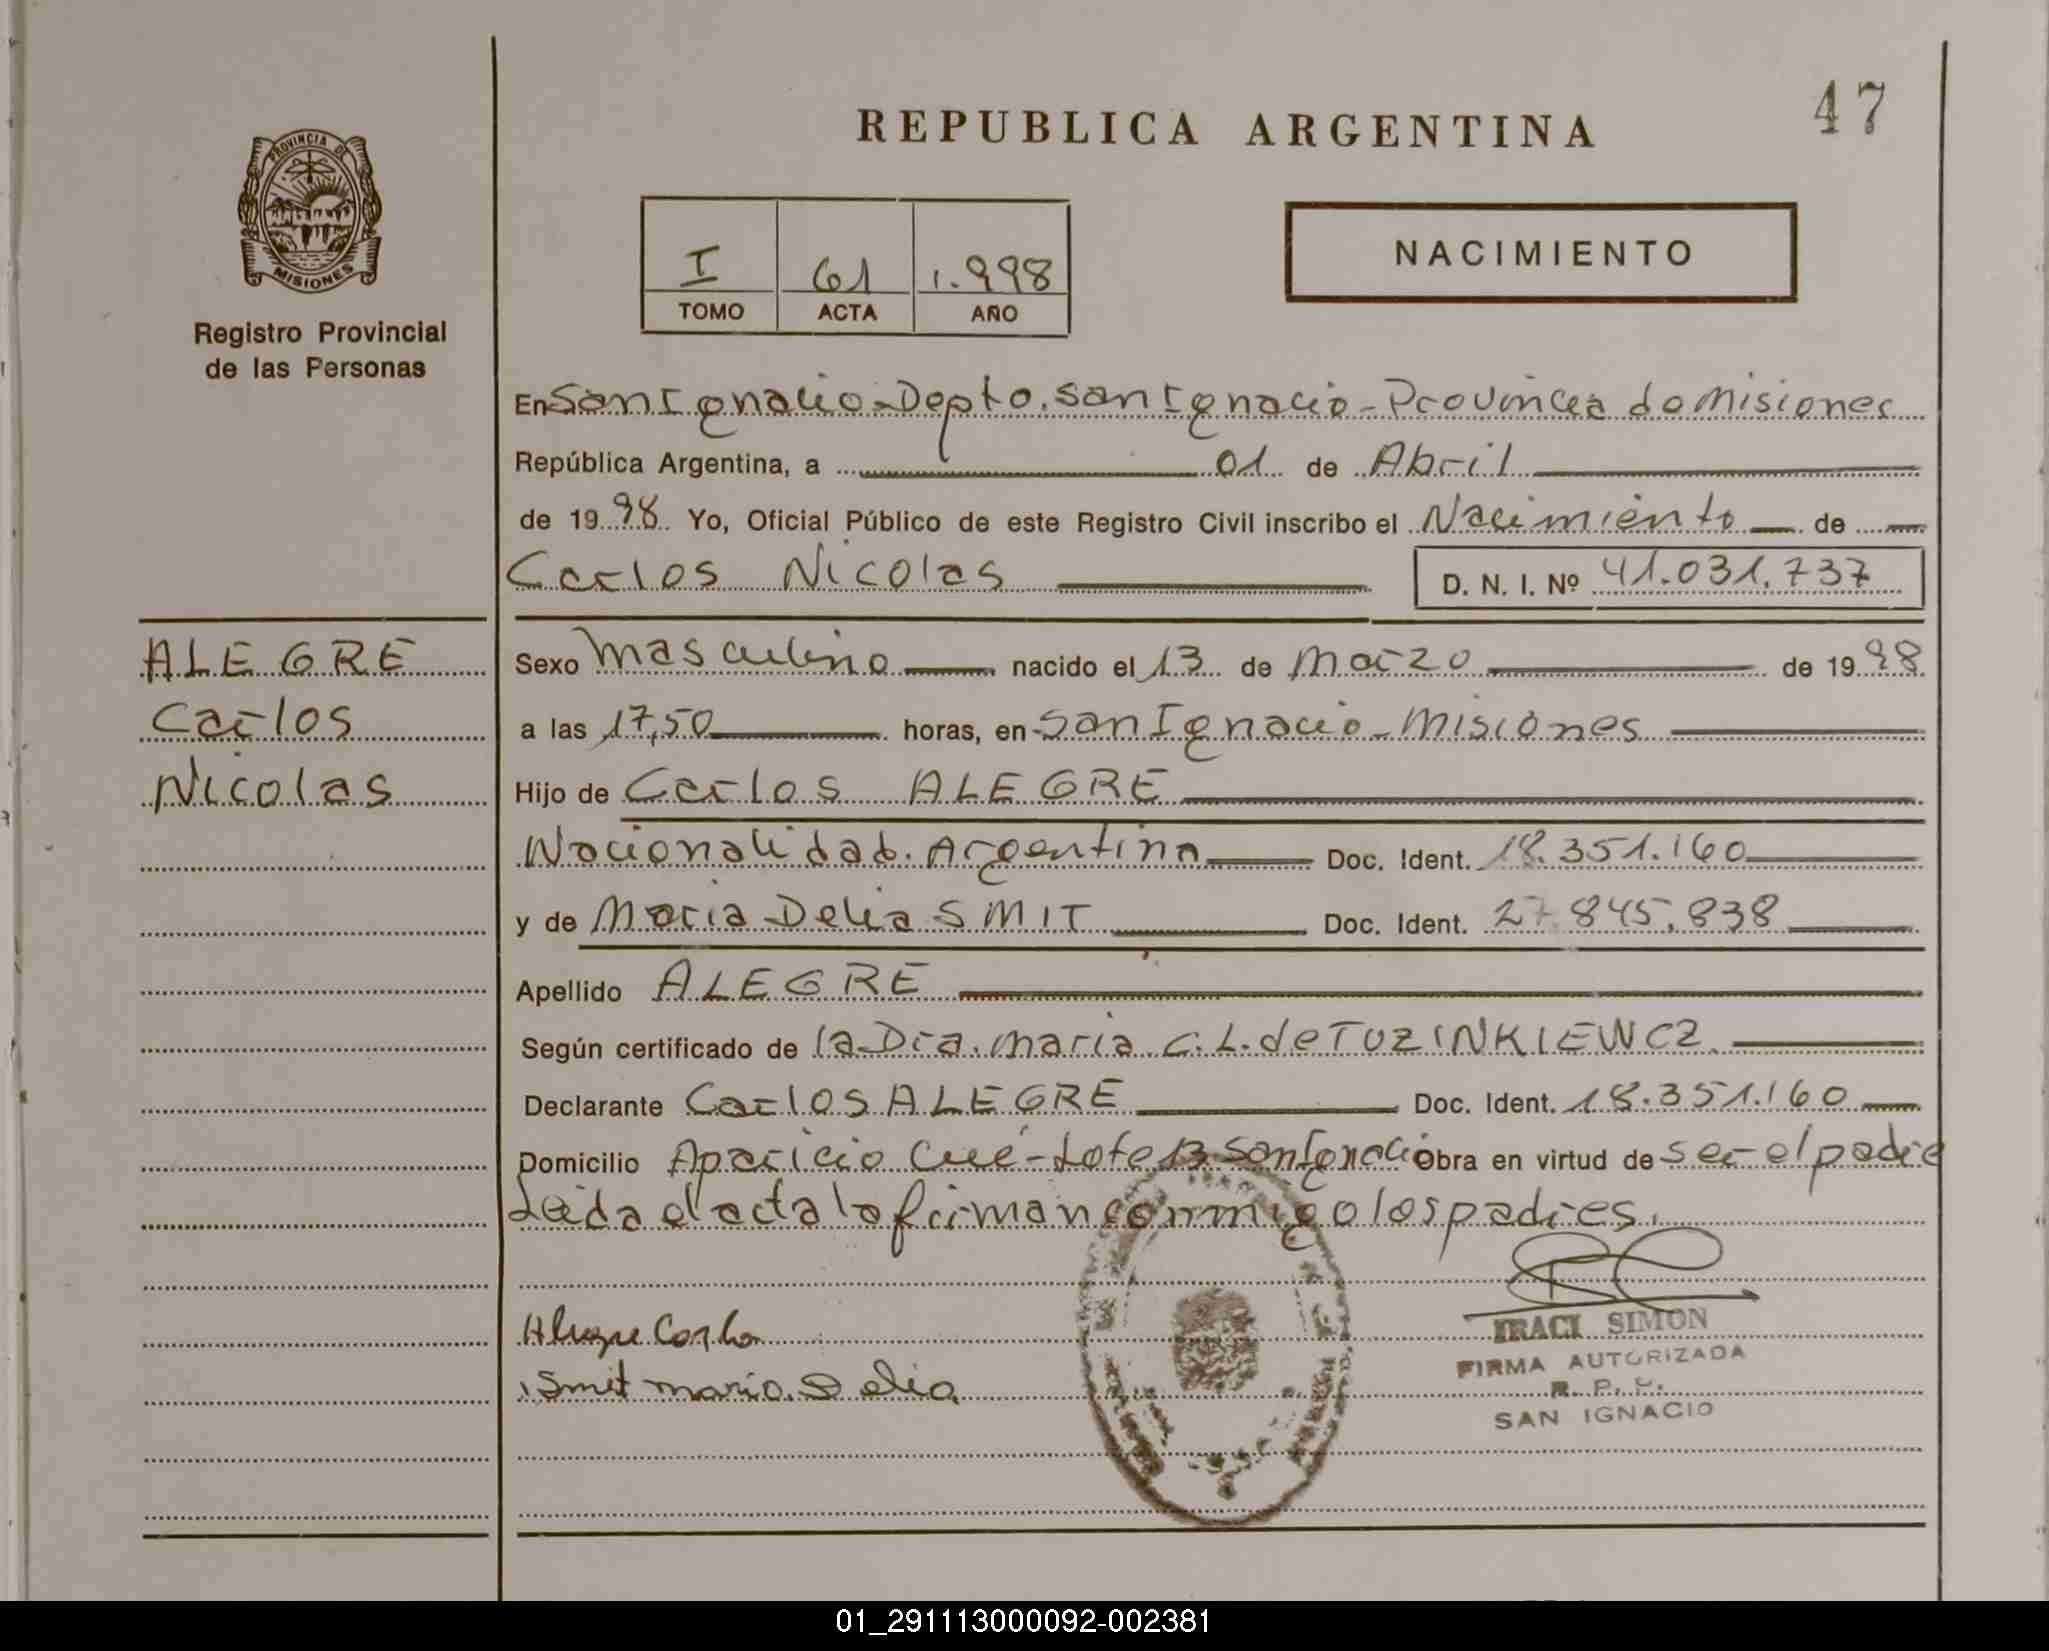 REPUBLICA ARGENTINA
47
PROVINCIA DE
MISIONES
Registro Provincial
de las Personas
I 61 1.998
TOMO ACTA AÑO
NACIMIENTO
En San Ignacio - Depto. San Ignacio - Provincia de Misiones
República Argentina, a 01 de Abril
de 1998 Yo, Oficial Público de este Registro Civil inscribo el Nacimiento de
Carlos Nicolas D. N. I. Nº 41.031.737
ALEGRE
Carlos
Nicolas
Sexo Masculino nacido el 13 de Marzo de 1998
a las 17,50 horas, en San Ignacio - Misiones
Hijo de Carlos ALEGRE
Nacionalidad. Argentina Doc. Ident. 18.351.160
y de Maria Delia SMIT Doc. Ident. 27.845.838
Apellido ALEGRE
Según certificado de la Dra. Maria C. L. de TUZINKIEWCZ
Declarante Carlos ALEGRE Doc. Ident. 18.351.160
Domicilio Aparicio Cué - Lote 13 San Ignacio Obra en virtud de ser el padre
Leida el acta la firman conmigo los padres.
Alegre Carlos
Smit Maria Delia
IRACI SIMON
FIRMA AUTORIZADA
R. P. C.
SAN IGNACIO
01_291113000092-002381